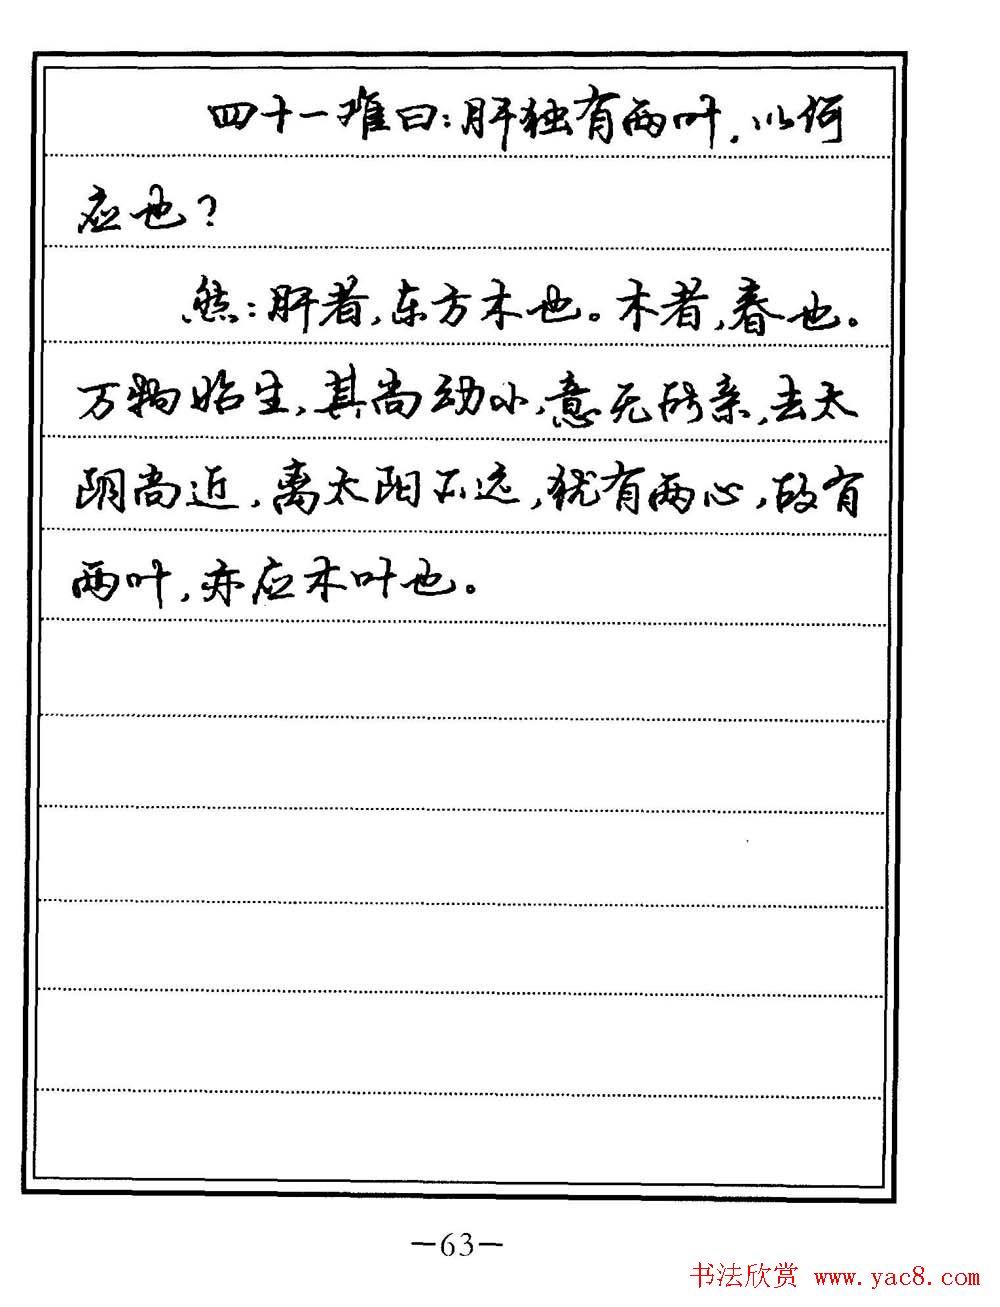 四十一难曰：肝独有两叶，以何
应也？
然：肝者，东方木也。木者，春也。
万物始生，其尚幼小，意无所亲，去太
阴尚近，离太阳不远，犹有两心，故有
两叶，亦应木叶也。
—63—
书法欣赏 www.yac8.com